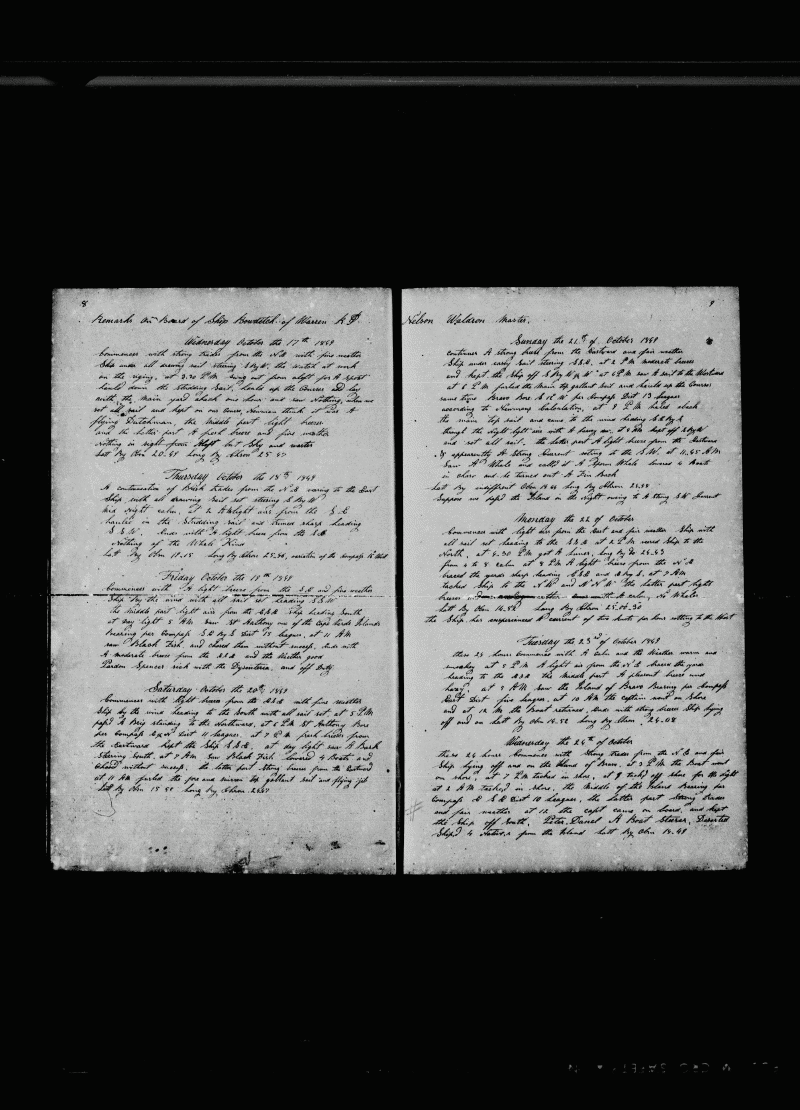 8
Remarks On Board of Ship Bowditch of Warren R I
Wednesday October the 17th 1849
Commences with strong trades from the N.E with fine weather
Ship under all drawing sail stering S By W, the watch at work
on the riging, at 3.30 P.M. sung out from aloft for A spout
hauld down the Studding Sail, hauld up the Courses and lay
with the Main yard aback one hour and saw Nothing, then we
set all sail and kept on our course,
flying Dutchman, the Middle part light breeses
and the latter part A fresh breese and fine weather
Nothing in sight from Aloft but Sky and warter
Latt By Obn 20.48 Long By Chron 25.47
Thursday October the 18th 1849
A continuation of Brisk trades from the N.E varing to the East
Ship with all drawing Sail set stering S By W
Mid Night calm, at 2 A.M light airs from the S E
hauled in the Studding Sail and trimed sharp heading
S S W. Ends with A light breese from the
Nothing of the Whale Kind
Latt By Obn 18.15 Long By Chron 25.54, variation of the Compass West
Friday October the 19th 1849
Commences with A light breese from the S.E and fine weather
Ship By the wind with all sail set heading S.S.W
the Middle part light airs from the Ship heading South
at day light 5 A.M. Saw St Anthony one of the Cape Verds Islands
Bearing per Compass S.E By E Dist 15 leagues, at 11 A.M
saw Black Fish, and chased them without sucsess, Ends with
A moderate breese from the and the Weather good
Pardon Spencer sick with the Dysenteria, and off Duty
Saturday October the 20th 1849
Commences with light breeses from the with fine weather
Ship By the wind heading to the South with all sail set, at 5 P.M
pass'd A Brig standing to the Northward, at 6 P.M St Anthony Bore
per Compass Dist 11 leagues. at 7 P.M fresh breeses from
the Eastward kept the Ship at day light saw A Bark
Stering South, at 7 A.M. Saw Black Fish lowered 4 Boats and
Chased without sucsess, the latter part Strong breeses from the Eastward
at 11 AM furled the fore and mizen top gallant Sail and flying jib
Latt By Obn 15.50 Long by Chron
9
Nelson Waldron Master.
Sunday the 21st of October 1849
continues A strong breese from the Eastward and fair weather
Ship under easy Sail stering S.S.E, at 2 P.M moderate breeses
and kept the Ship off at 4 P.M saw A sail to the Westward
at 6 P.M furled the Main top gallant Sail and hauld up the Courses
same time Bravo Bore per Compass Dist 13 leagues
according to Newmans Calculation, at 8 P.M hales aback
the main top sail and came to the wind heading
though the Night light airs with A heavy sea. at 4 AM kept off
and set all sail. the latter part A light breese from the Eastward
& apparently A Strong Current setting to the S.W. at 11.45 A.M
Saw A Whale and called it A Sperm Whale lowered 4 Boats
in chase and he turned out A Fin Back
Latt By indifferent Obn 14.44 Long By Chron
Suppose we pass'd the Island in the Night owing to A strong S.W Current
Monday the 22 of October
Commences with light airs from the East and fair weather Ship with
all sail set heading to the S.S.E at 2 P.M wared Ship to the
North, at 4.30 P.M got A Lunar, Long By Do 24.43
from 4 to 8 calm at 8 P.M A light breese from the N.E
braced the yards sharp heading at 7 AM
tacked Ship to the N.W the Latter part light
breeses calm, No Whales
Latt By Obn 14.52 Long By Chron 25.04.30
the Ship has experienced A current of two knots per hour setting to the West
Tuesday the 23d of October 1849
these 24 hours Commences with A calm and the Weather warm and
smokey at 5 P.M A light air from the N.E braced the yards
heading to the the Middle part A pleasent breese and
hazy. at 5 A.M. Saw the Island of Bravo Bearing per Compass
East Dist five leagues, at 10 AM the captain went on Shore
and at 12 M the Boat returned, Ends with strong breeses Ship lying
off and on Latt By Obn 14.52 Long By Chron 24.08
Wednesday the 24th of October
these 24 hours Commences with Strong trades from the N.E and fair
Ship lying off and on the Island of Bravo. at 3 P.M the Boat went
on shore, at 7 P.M tacked in shore, at 9 tack'd off shore for the Night
at 2 A.M tack'd in Shore, the Middle of the Island Bearing per
Compass Dist 10 leagues, the latter part Strong trades
and fair weather at 12 the capt came on board, and kept
the Ship off South, Peter Daniel A Boat Steerer, Deserted
Ship'd 4 Natives from the Island Latt By Obn 14.49